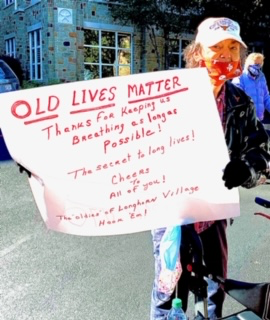 OLD LIVES MATTER
Thanks for Keeping us
Breathing as long as
Possible!
The secret to long lives!
Cheers
To
All of you!
The "oldies" of Longhorn Village
Hook 'Em!